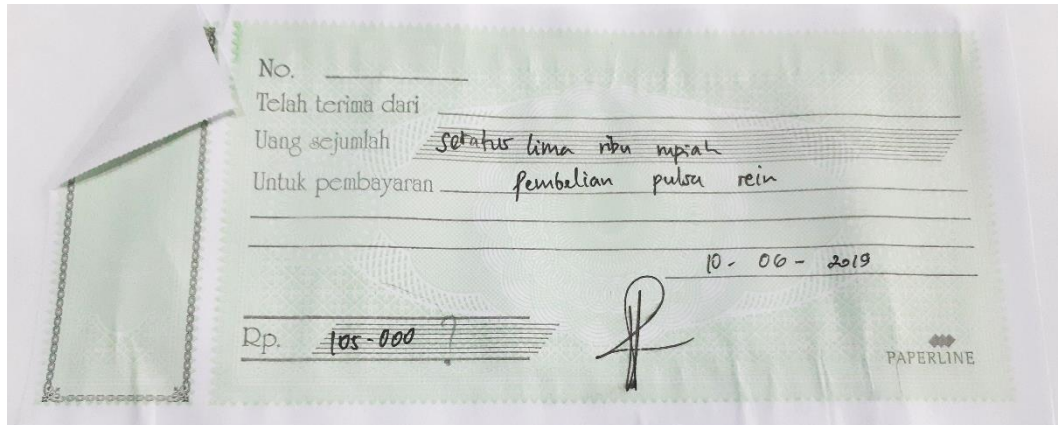 No.
Telah terima dari
Uang sejumlah seratus lima ribu rupiah
Untuk pembayaran Pembelian pulsa rein
10 - 06 - 2019
Rp. 105-000 ?
PAPERLINE